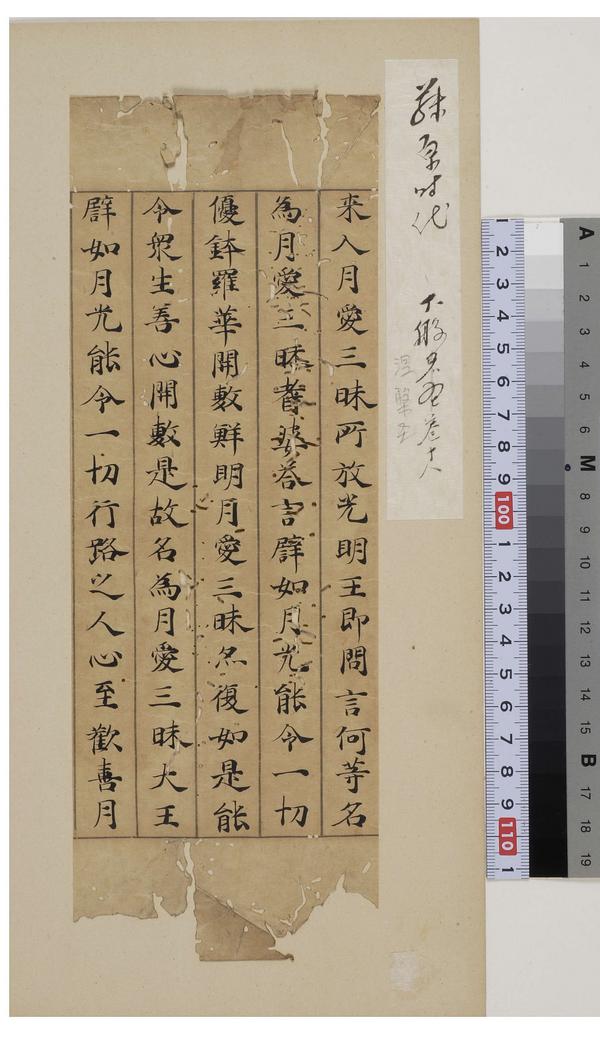 藤原時代
来入月愛三昧所放光明王即問言何等名
為月愛三昧耆婆答言譬如月光能令一切
優鉢羅華開敷鮮明月愛三昧亦復如是能
令衆生善心開敷是故名為月愛三昧大王
譬如月光能令一切行路之人心至歡喜月
1 2 3 4 5 6 7 8 9 100 1 2 3 4 5 6 7 8 9 110 1
A 1 2 3 4 5 6 M 8 9 10 11 12 13 14 15 B 17 18 19